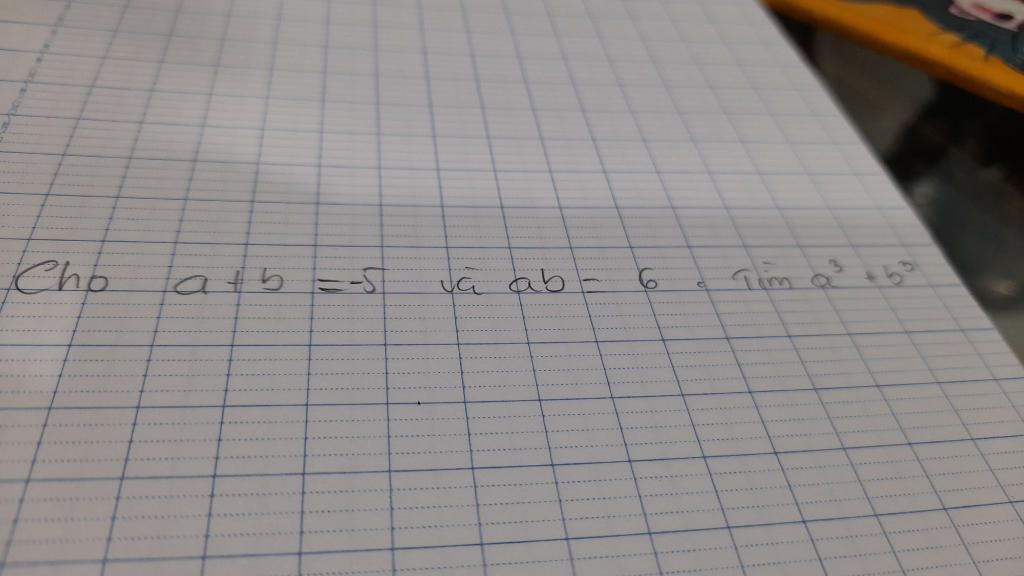 Cho a + b = -5 và ab = 6. Tìm a³ + b³